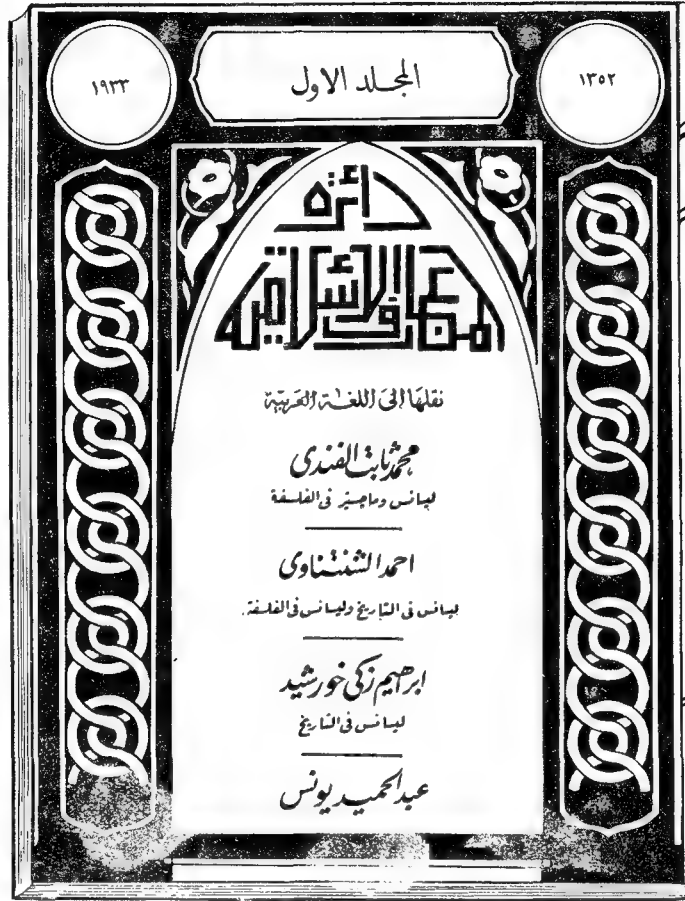 ١٣٥٢
المجلد الاول
١٩٣٣
دائرة
المعارف الاسلامية
نقلها إلى اللغة العربية
محمد ثابت الفندى
ليسانس وماجستير فى الفلسفة
احمد الشنتناوى
ليسانس فى التاريخ وليسانس فى الفلسفة.
ابرهيم زكى خورشيد
ليسانس فى التاريخ
عبد الحميد يونس